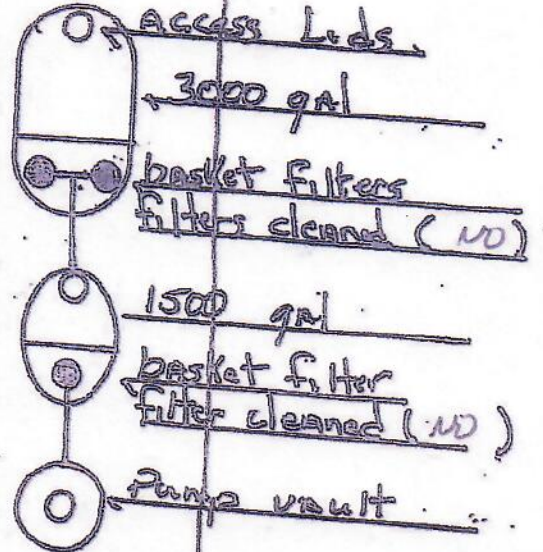 Access Lids
3000 gal
basket filters
filters cleaned (NO)
1500 gal
basket filter
filter cleaned (NO)
Pump vault